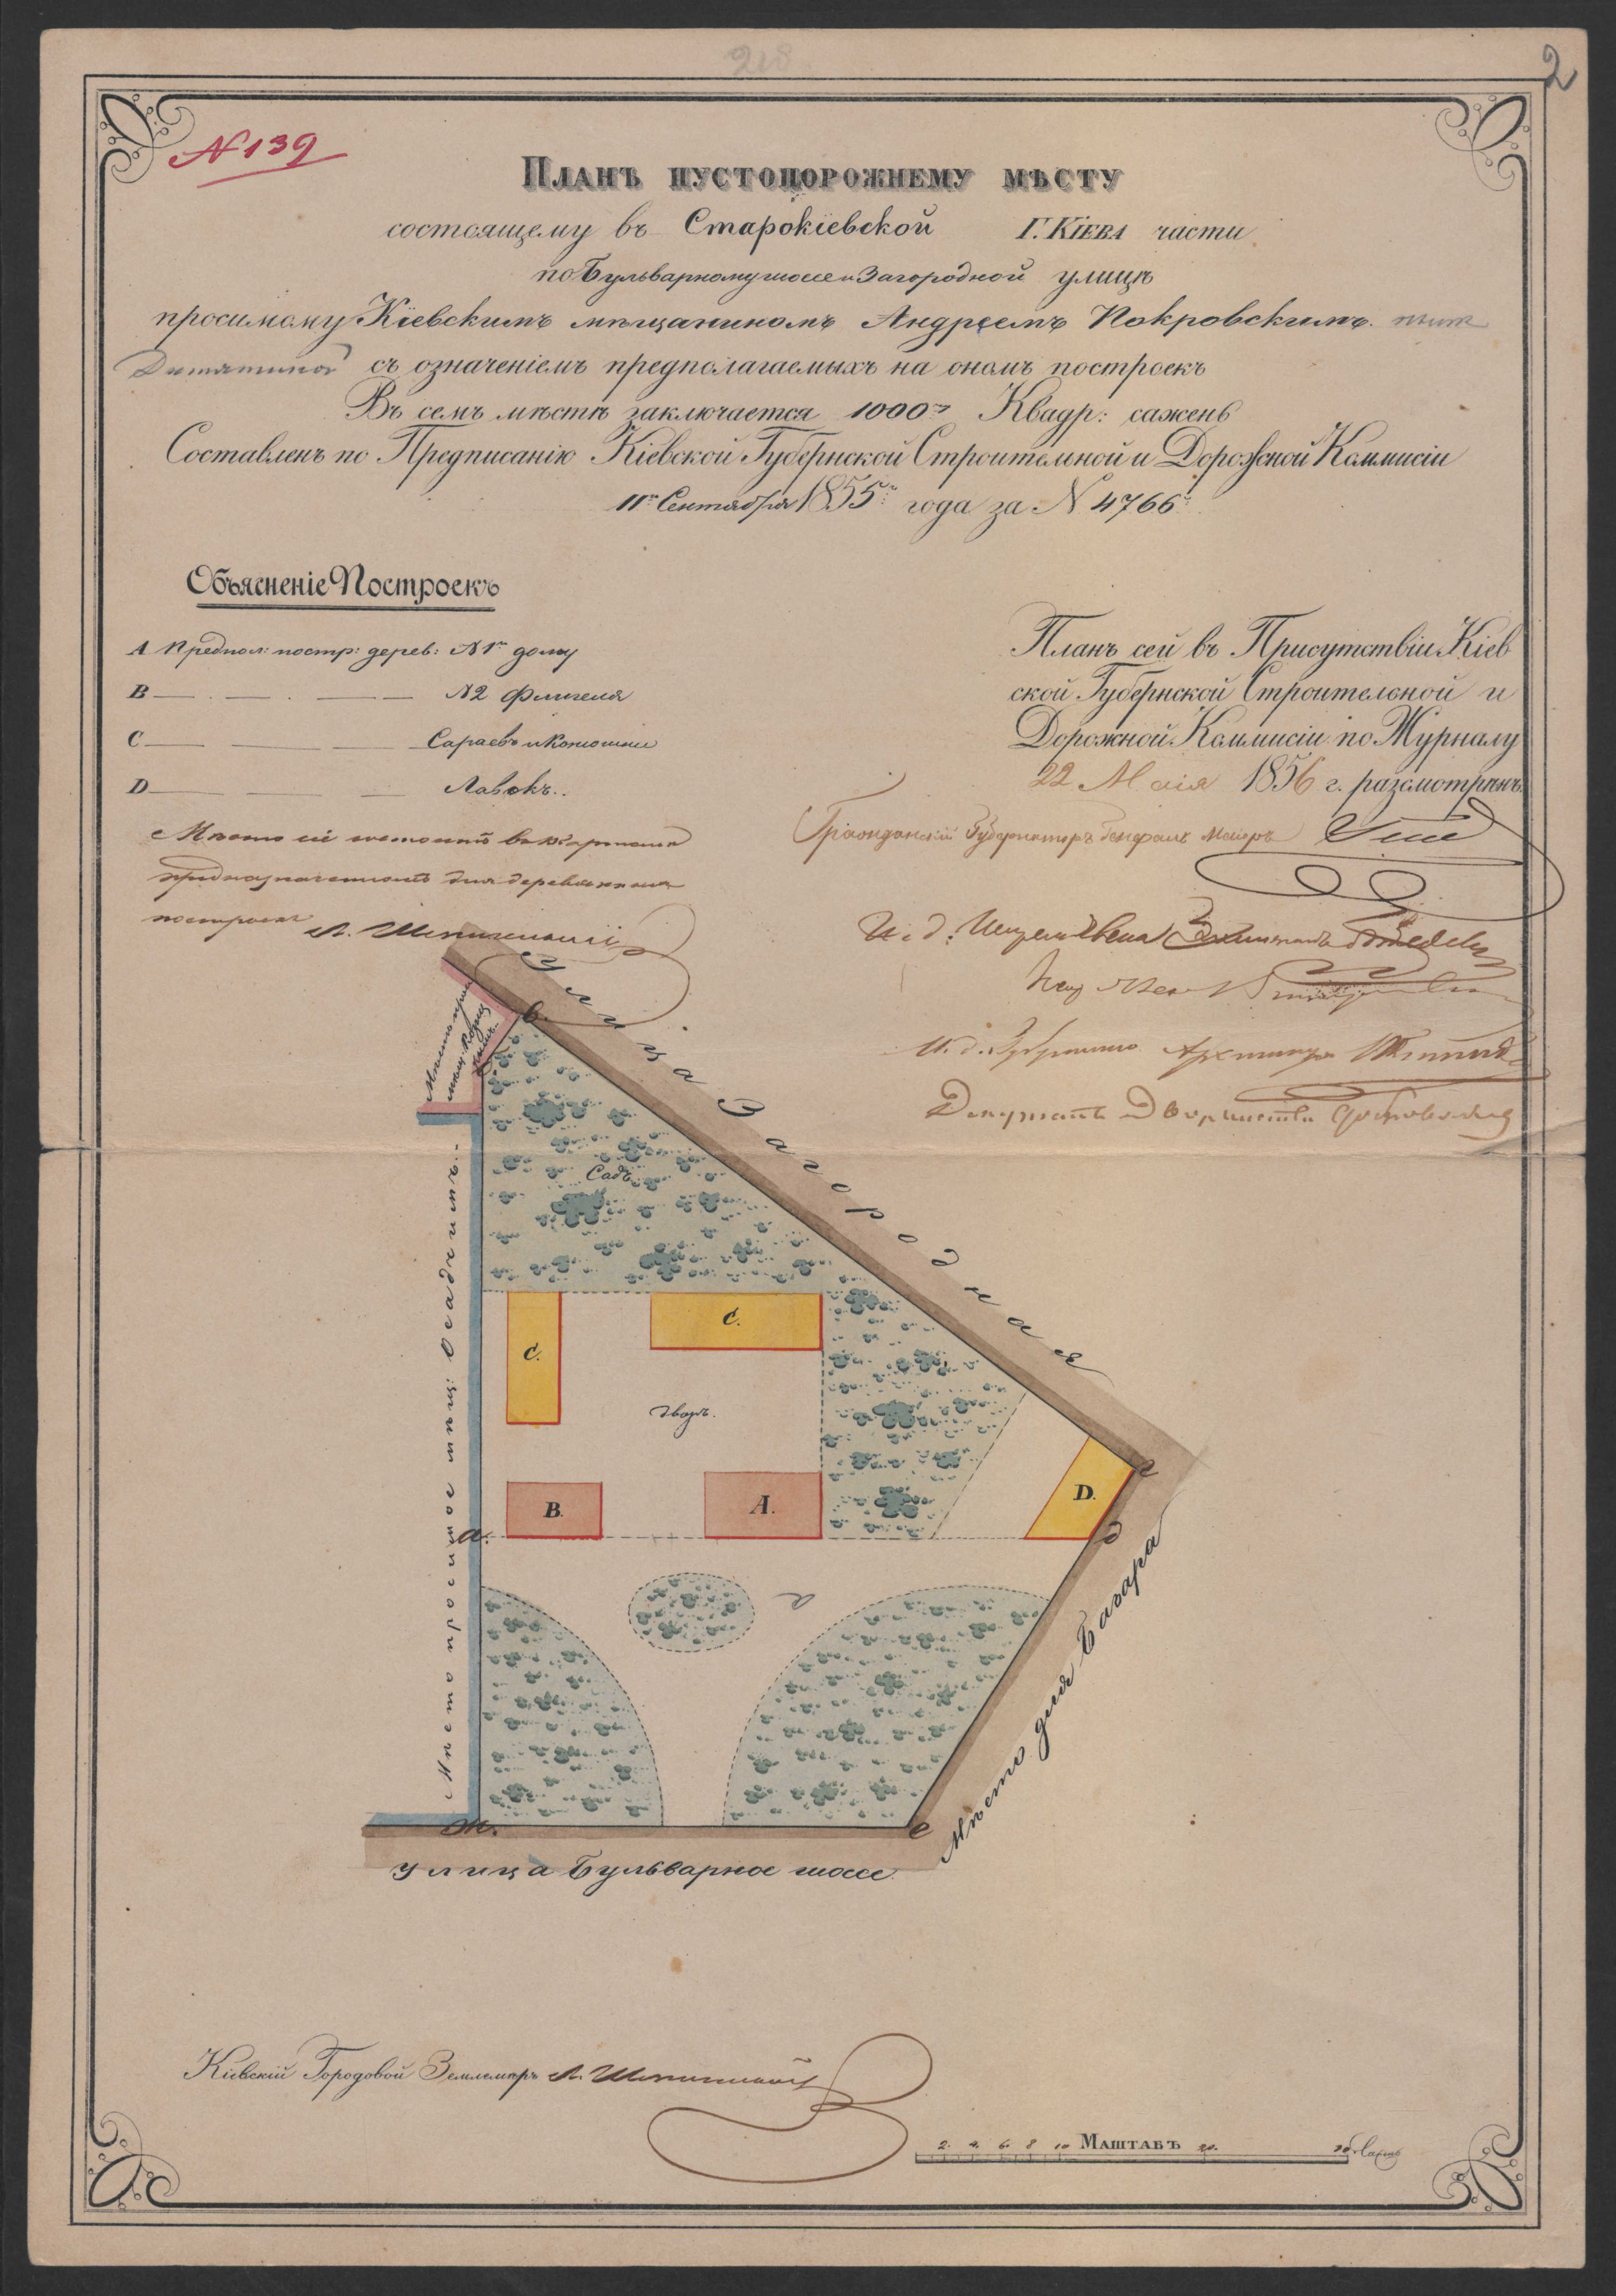 2
N 139
Планъ пустопорожнему мѣсту
состоящему въ Старокіевской Г. Кіева части
по Бульварному шоссе и Загородной улицѣ
просимому Кіевскимъ мѣщаниномъ Андреемъ Покровскимъ.
съ означеніемъ предполагаемыхъ на ономъ построекъ
Въ семъ мѣстѣ заключается 1000 Квадр: сажень
Составленъ по Предписанію Кіевской Губернской Строительной и Дорожной Коммисіи
11го Сентября 1855го года за N 4766
Объясненіе Построекъ
A Предпол: постр: дерев: N 1го дому
B N2 Флигеля
C Сараевъ и Конюшни
D Лавокъ..
Мѣсто сіе состоитъ въ кварталѣ
предназначенномъ для деревянныхъ
построекъ
Планъ сей въ Присутствіи Кіев
ской Губернской Строительной и
Дорожной Коммисіи по Журналу
22 Маія 1856 г. разсмотрѣнъ
Гражданскій Губернаторъ Генералъ Маіоръ
И. д.
И. д. Архитектора
Депутатъ Дворянства
Улица Загородная
в.
Садъ.
C.
C.
Дворъ.
B.
A.
D.
г
д
а.
Мѣсто просимое мѣщ: Осадчимъ.
Мѣсто для Базара
ж.
е
улица Бульварное шоссе.
Кіевскій Городовой Землемѣръ
2. 4. 6. 8 10 Маштабъ 20. 30 Сажень